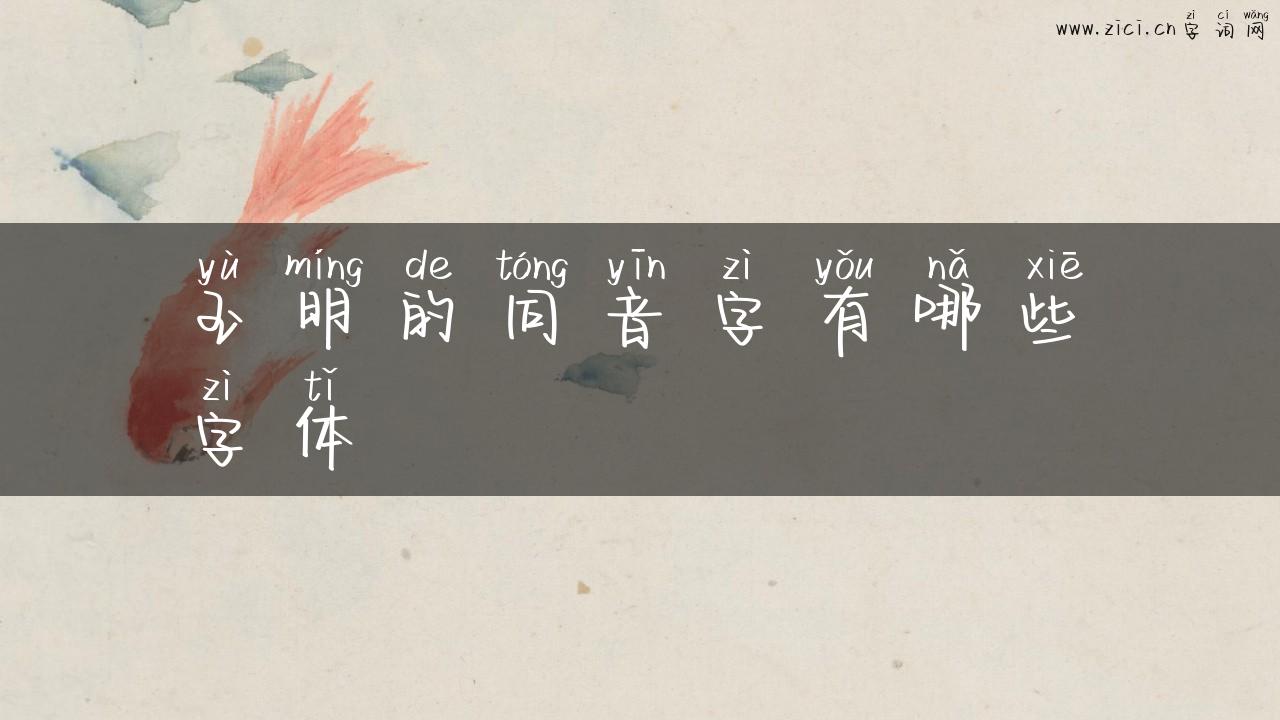 zì cí wǎng
www.zici.cn 字 词 网
yù míng de tóng yīn zì yǒu nǎ xiē
玉 明 的 同 音 字 有 哪 些
zì tǐ
字 体